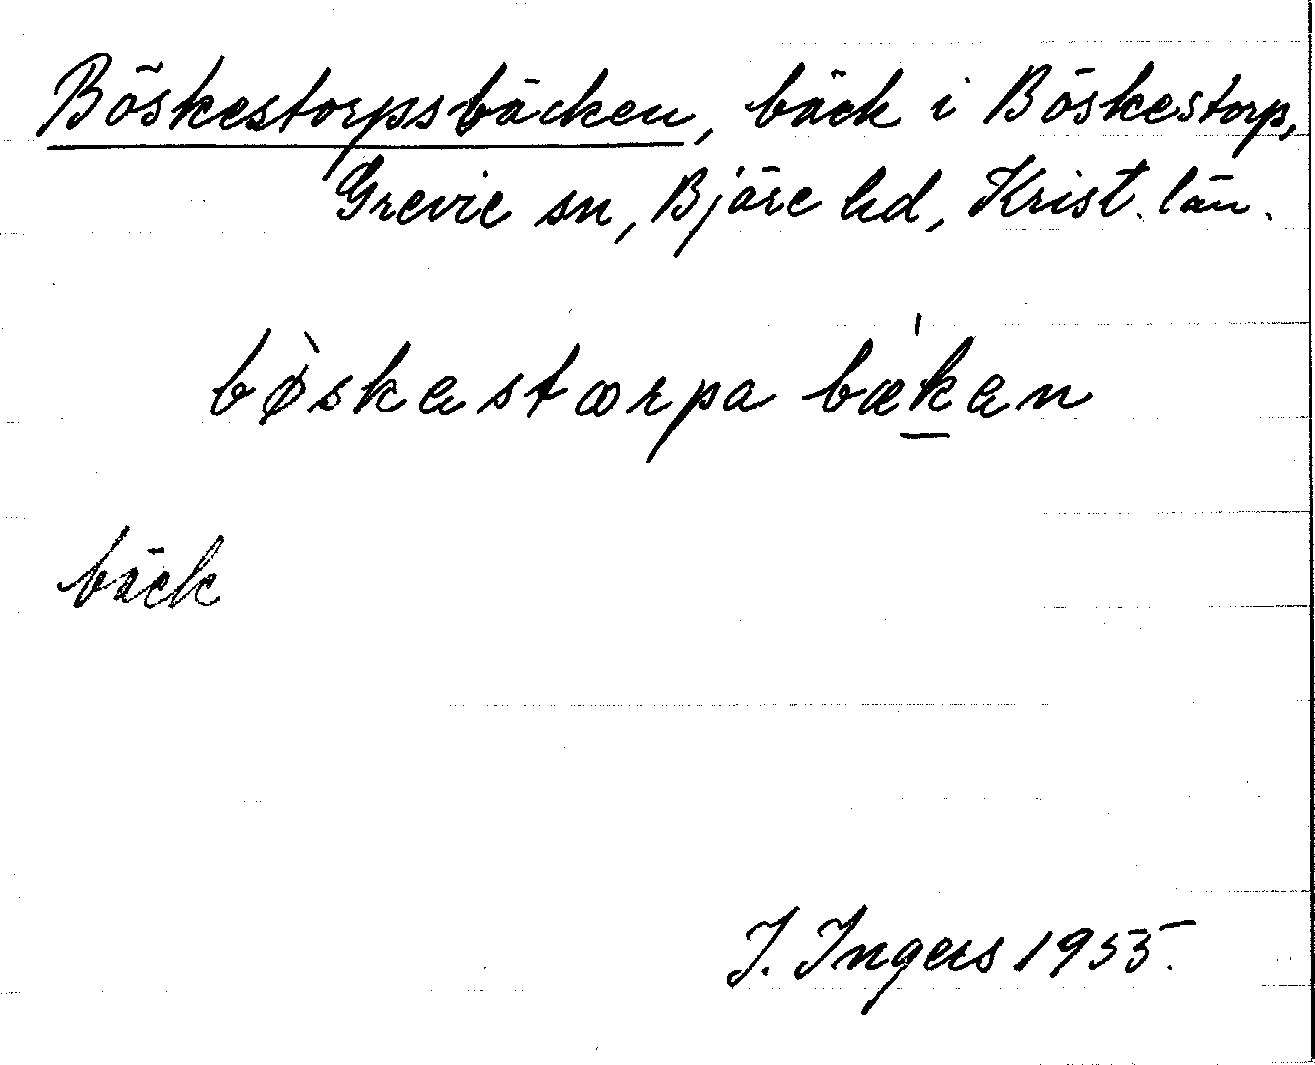 Böskestorpsbäcken, bäck i Böskestorp,
Grevie sn, Bjäre hd, Krist. län.
bø̀skastærpa bæ'k̲an
bäck
I. Ingers 1955.